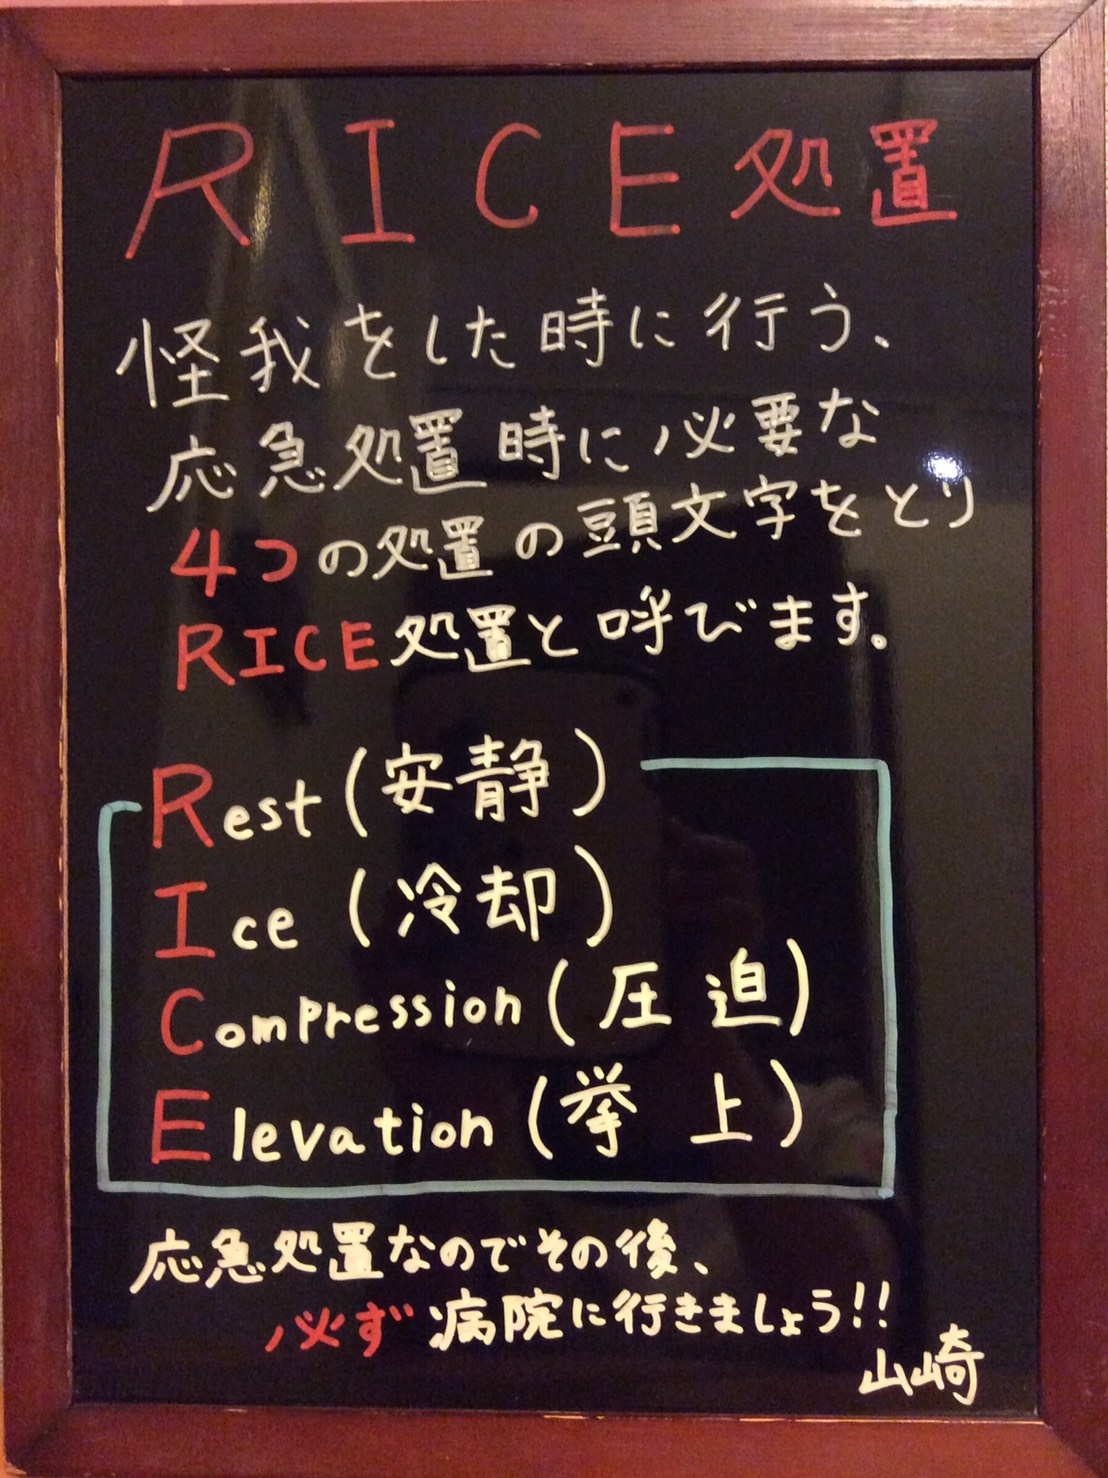 RICE処置
怪我をした時に行う、
応急処置時に必要な
4つの処置の頭文字をとり
RICE処置と呼びます。
Rest(安静)
Ice(冷却)
Compression(圧迫)
Elevation(挙上)
応急処置なのでその後、
必ず病院に行きましょう!!
山崎